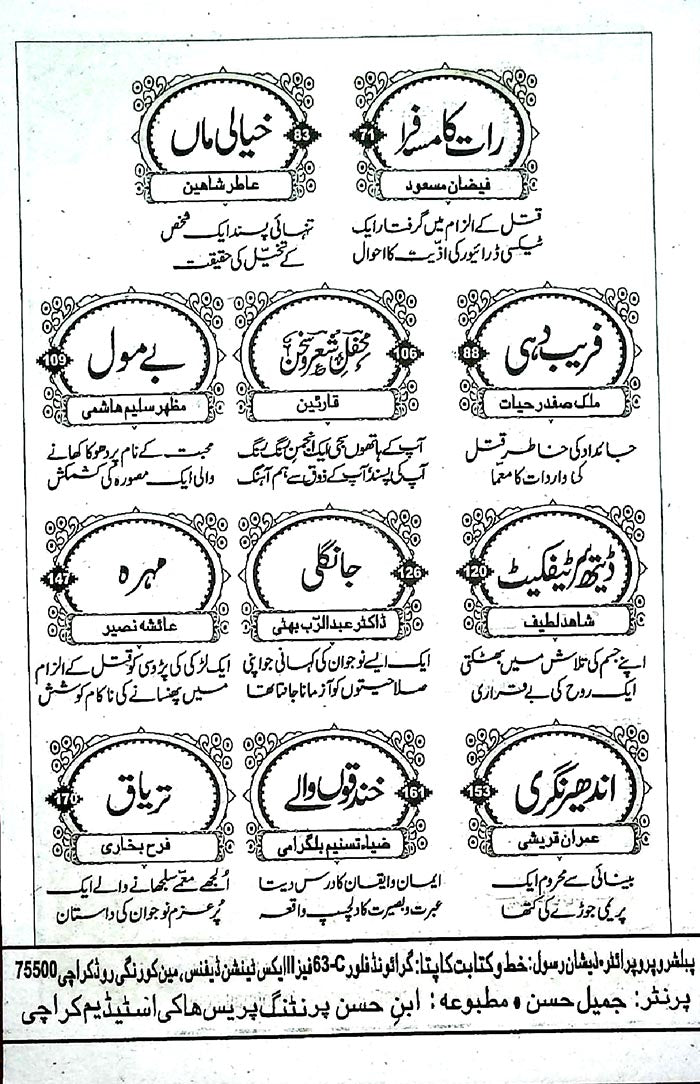 رات کا مسافر
71
فیضان مسعود
قتل کے الزام میں گرفتار ایک
ٹیکسی ڈرائیور کی اذیت کا احوال
خیالی ماں
83
عاطر شاھین
تنہائی پسند ایک شخص
کے تخیّل کی حقیقت
فریب دہی
88
ملک صفدر حیات
جائداد کی خاطر قتل
کی واردات کا معمّا
محفلِ شعر و سخن
106
قارئین
آپ کے ہاتھوں سجی ایک انجمن رنگ رنگ
آپ کی پسند آپ کے ذوق سے ہم آہنگ
بے مول
109
مظہر سلیم ہاشمی
محبت کے نام پر دھوکا کھانے
والی ایک مصورہ کی کشمکش
ڈیتھ سرٹیفکیٹ
120
شاھد لطیف
اپنے جسم کی تلاش میں بھٹکتی
ایک روح کی بے قراری
جانگلی
126
ڈاکٹر عبدالرّب بھٹی
ایک ایسے نوجوان کی کہانی جو اپنی
صلاحیتوں کو آزمانا جانتا تھا
مہرہ
147
عائشہ نصیر
ایک لڑکی کی پڑوسی کو قتل کے الزام
میں پھنسانے کی ناکام کوشش
اندھیر نگری
153
عمران قریشی
بینائی سے محروم ایک
پریمی جوڑے کی کتھا
خندقوں والے
161
ضیاء تسنیم بلگرامی
ایمان و ایقان کا درس دیتا
عبرت و بصیرت کا دلچسپ واقعہ
تریاق
170
فرح بخاری
الجھے معمے سلجھانے والے ایک
پُرعزم نوجوان کی داستان
پبلشر و پروپرائٹر: ذیشان رسول: خط و کتابت کا پتا: گرائونڈ فلور 63-C فیز II ایکس ٹینشن ڈیفنس، مین کورنگی روڈ کراچی 75500
پرنٹر: جمیل حسن • مطبوعہ: ابنِ حسن پرنٹنگ پریس ھاکی اسٹیڈیم کراچی